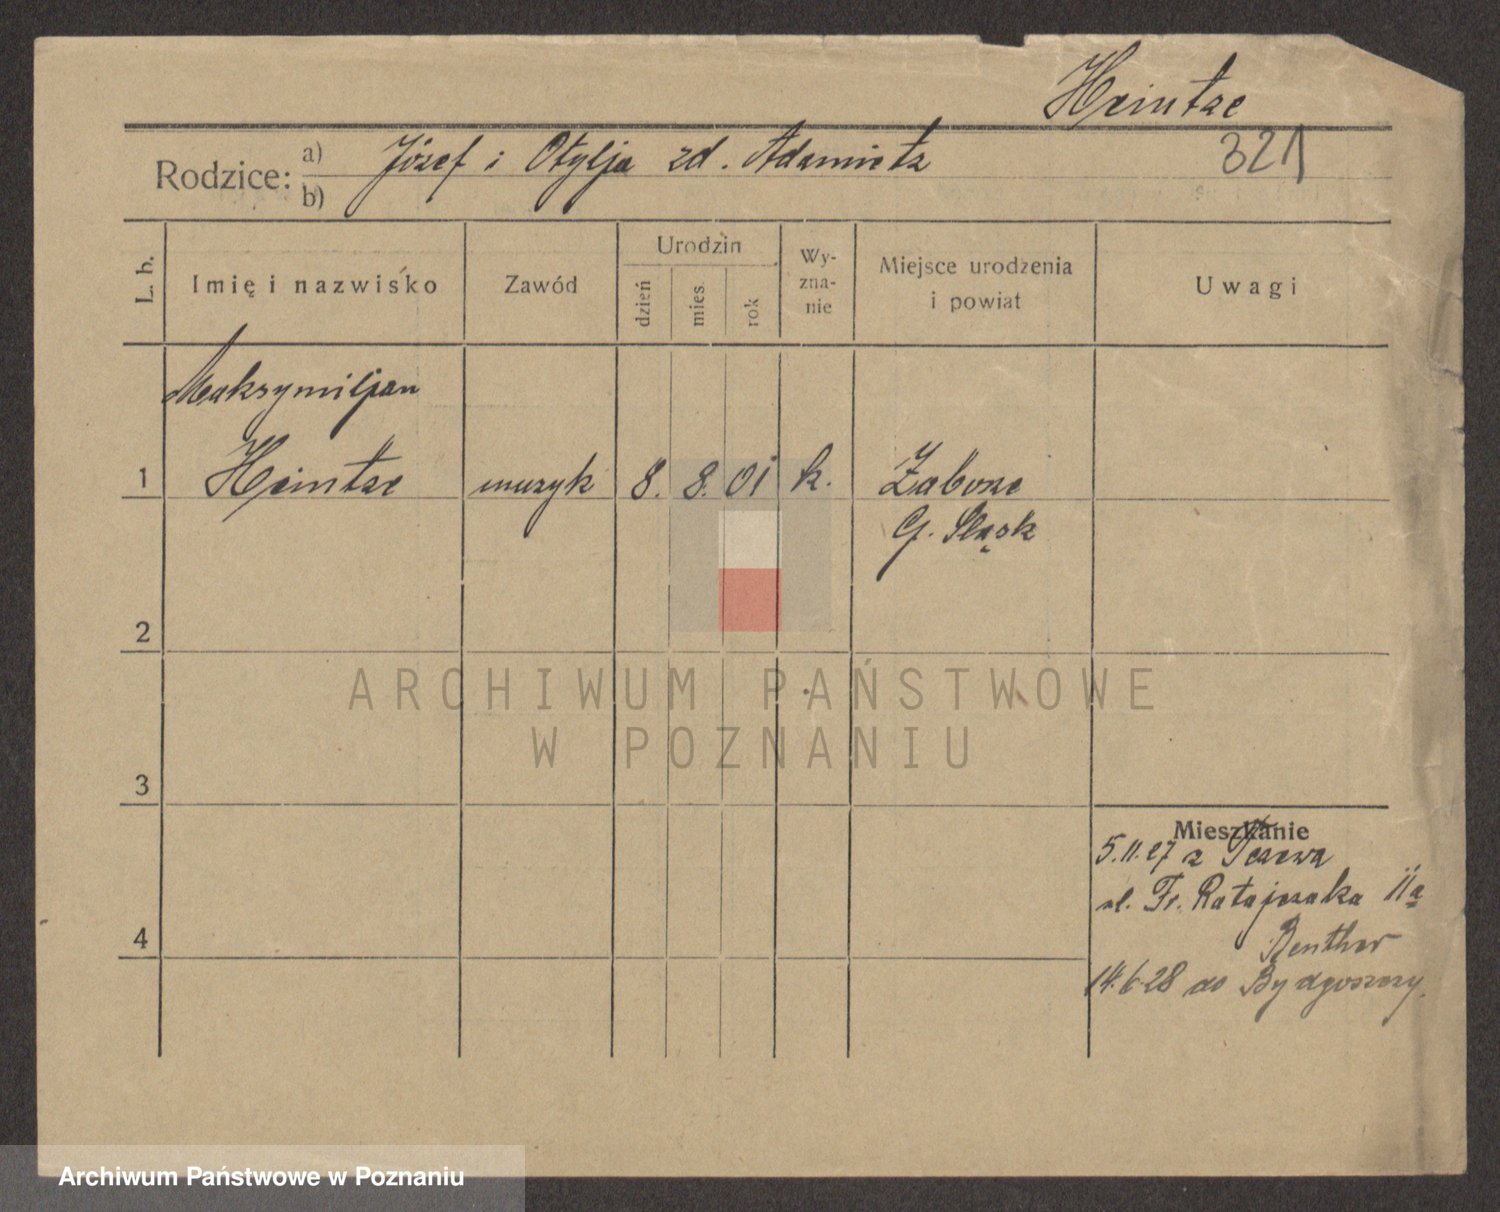 Heintze
Rodzice: a) Józef i Otylja zd. Adamietz
b)
321
L. b.
Imię i nazwisko
Zawód
Urodzin
dzień
mies.
rok
Wy-
zna-
nie
Miejsce urodzenia
i powiat
Uwagi
Maksymiljan
1 Heintze muzyk 8. 8. 01 k. Zaborze
G. Śląsk
2
ARCHIWUM PAŃSTWOWE
W POZNANIU
3
Mieszkanie
5.11.27 z Tczewa
ul. Fr. Ratajczaka 11a
Benther
4
14.6.28 do Bydgoszczy.
Archiwum Państwowe w Poznaniu